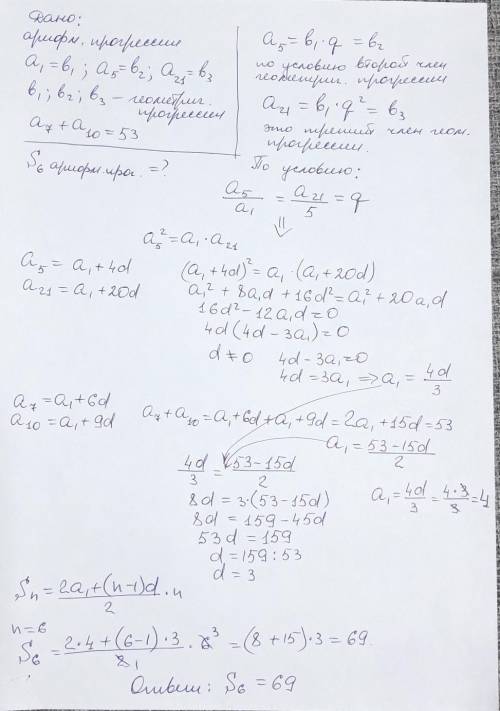 Дано:
арифм. прогрессии
a₁ = b₁ ; a₅ = b₂ ; a₂₁ = b₃
b₁ ; b₂ ; b₃ – геометриг.
прогрессии
a₇ + a₁₀ = 53
S₆ арифм. прог. = ?
a₅ = b₁ · q = b₂
по условию второй член
геометриг. прогрессии
a₂₁ = b₁ · q² = b₃
это третий член геом.
прогрессии.
По условию:
a₅/a₁ = a₂₁/5 = q
⇓
a₅² = a₁ · a₂₁
a₅ = a₁ + 4d
a₂₁ = a₁ + 20d
(a₁ + 4d)² = a₁ · (a₁ + 20d)
a₁² + 8a₁d + 16d² = a₁² + 20a₁d
16d² – 12a₁d = 0
4d(4d – 3a₁) = 0
d ≠ 0 4d – 3a₁ = 0
4d = 3a₁ ⇒ a₁ = 4d/3
a₇ = a₁ + 6d
a₁₀ = a₁ + 9d
a₇ + a₁₀ = a₁ + 6d + a₁ + 9d = 2a₁ + 15d = 53
a₁ = (53 – 15d)/2
4d/3 = (53 – 15d)/2
8d = 3·(53 – 15d)
8d = 159 – 45d
53d = 159
d = 159 : 53
d = 3
a₁ = 4d/3 = (4·3)/3 = 4
Sₙ = (2a₁ + (n–1)d)/2 · n
n = 6
S₆ = (2·4 + (6–1)·3)/2₁ · 6³ = (8 + 15)·3 = 69.
Ответ: S₆ = 69